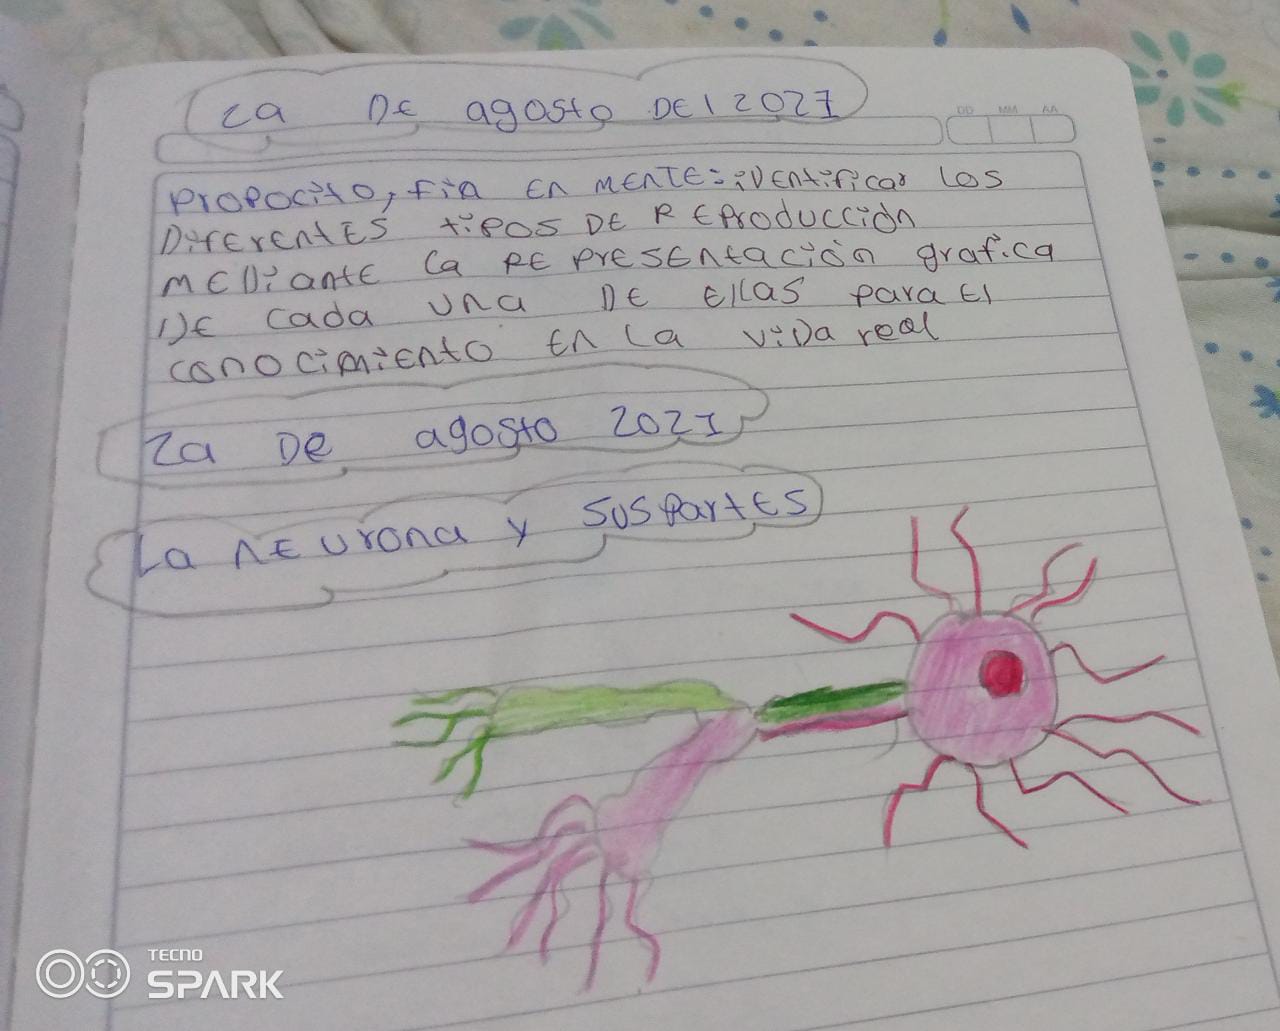 2a DE agosto DEl 2021
DD MM AA
Propocito, fin En mENTE: iDEntificar los
DiferentES tipos DE REProducción
mEDiantE la REPresEntación grafica
DE cada una DE Ellas para El
conocimiento En la viDa real
2a De agosto 2021
La nEurona y sus partES
TECNO
SPARK